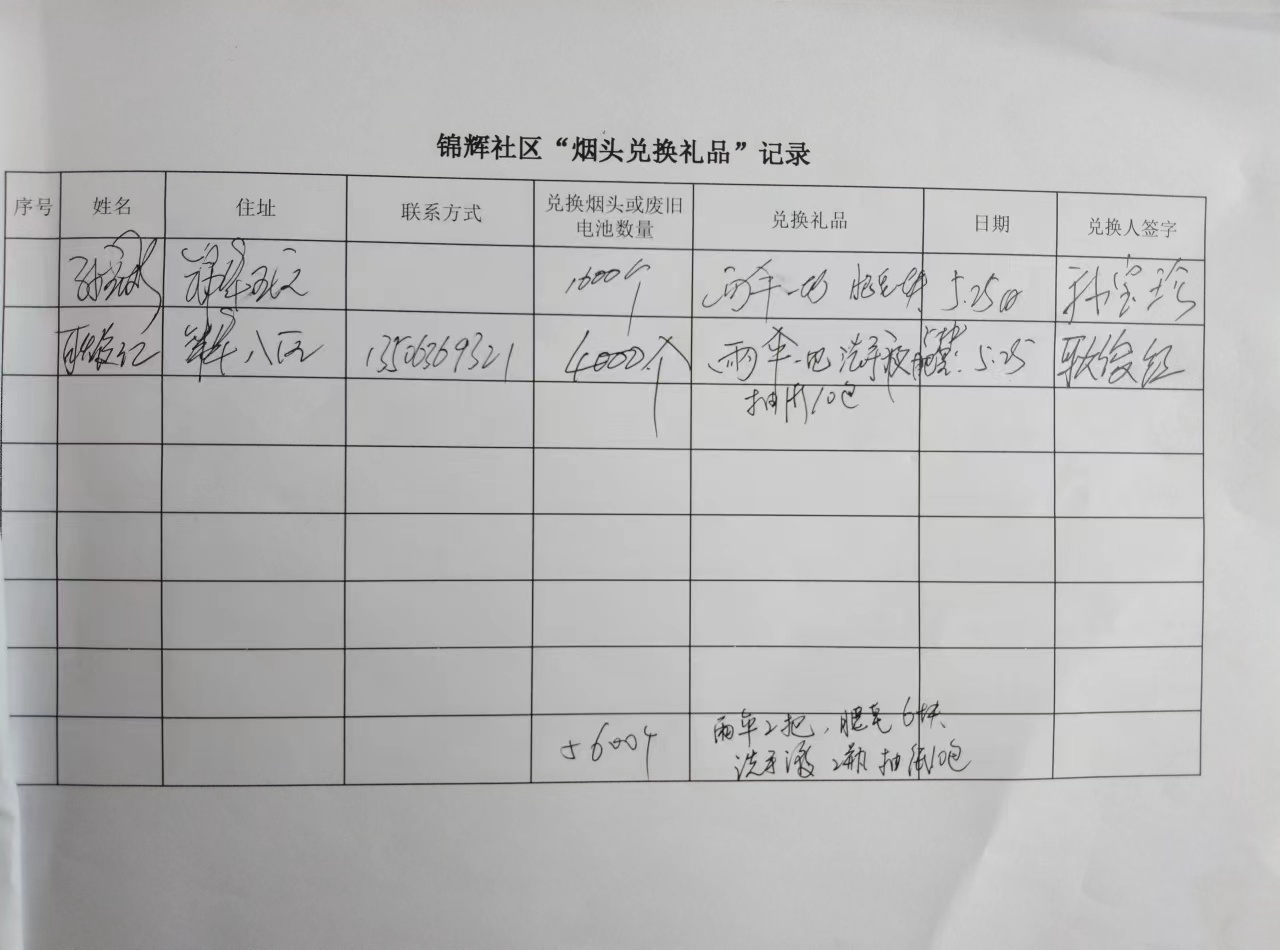 锦辉社区“烟头兑换礼品”记录
序号 姓名 住址 联系方式 兑换烟头或废旧电池数量 兑换礼品 日期 兑换人签字
1600个 雨伞一把 肥皂一块 5.25日 孙宝珍
八区 13506369321 4000个 雨伞一把 洗手液 5.25
抽纸10包
5600个 雨伞2把,肥皂6块
洗手液2瓶 抽纸10包